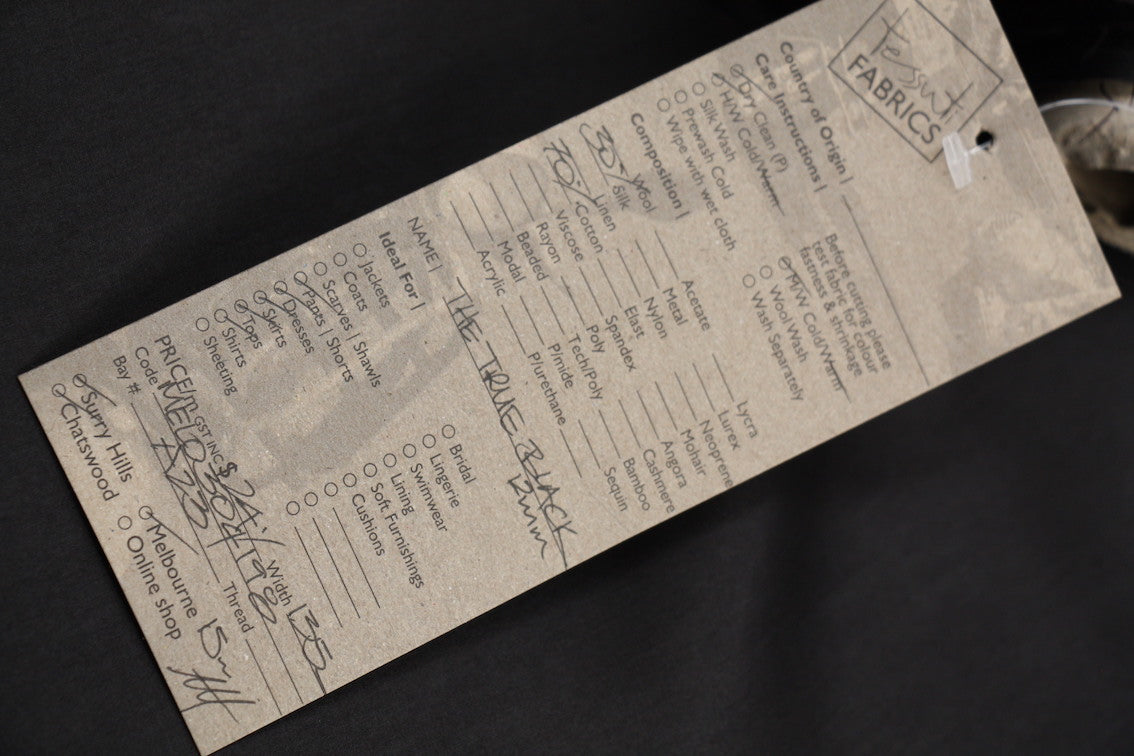 tessuti
FABRICS
Country of Origin |
Care Instructions |
Dry Clean (P)
H/W Cold/Warm
Silk Wash
Prewash Cold
Wipe with wet cloth
Before cutting please
test fabric for colour
fastness & shrinkage
M/W Cold/Warm
Wool Wash
Wash Separately
Composition |
Wool
30% Silk
Linen
70% Cotton
Viscose
Rayon
Beaded
Modal
Acrylic
Acetate
Metal
Nylon
Elast
Spandex
Poly
Tech/Poly
P/mide
P/urethane
Lycra
Lurex
Neoprene
Mohair
Angora
Cashmere
Bamboo
Sequin
NAME | THE TRUE BLACK
12mm
Ideal For |
Jackets
Coats
Scarves | Shawls
Pants | Shorts
Dresses
Skirts
Tops
Shirts
Sheeting
Bridal
Lingerie
Swimwear
Lining
Soft Furnishings
Cushions
PRICE/ GST INC Width 135
Code
Bay # Thread
Surry Hills
Chatswood
Melbourne 15m
Online shop